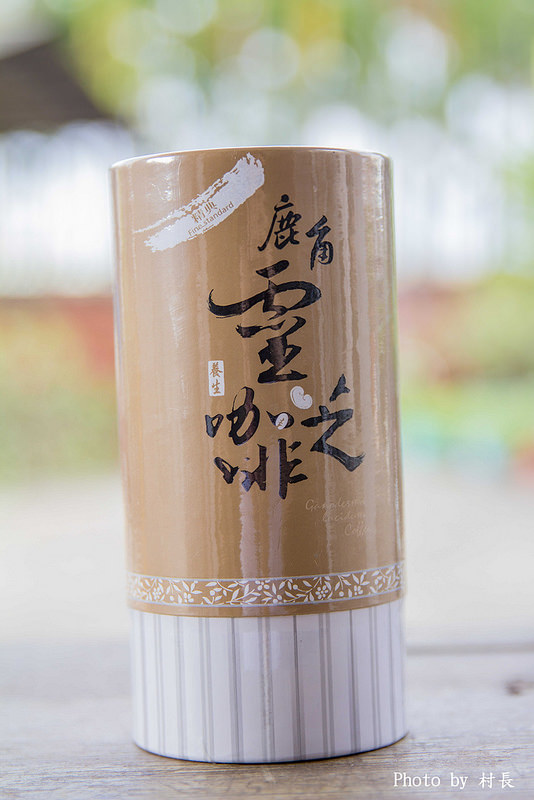 精典
Fine Standard
鹿角
靈芝
養生
咖啡
Ganoderma
Lucidum
Coffee
Photo by 村長